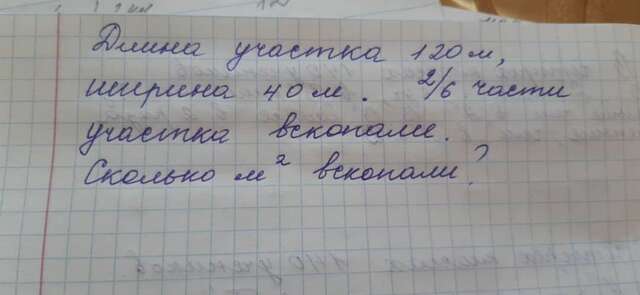 Длина участка 120 м,
ширина 40 м. 2/6 части
участка вскопали.
Сколько м² вскопали?